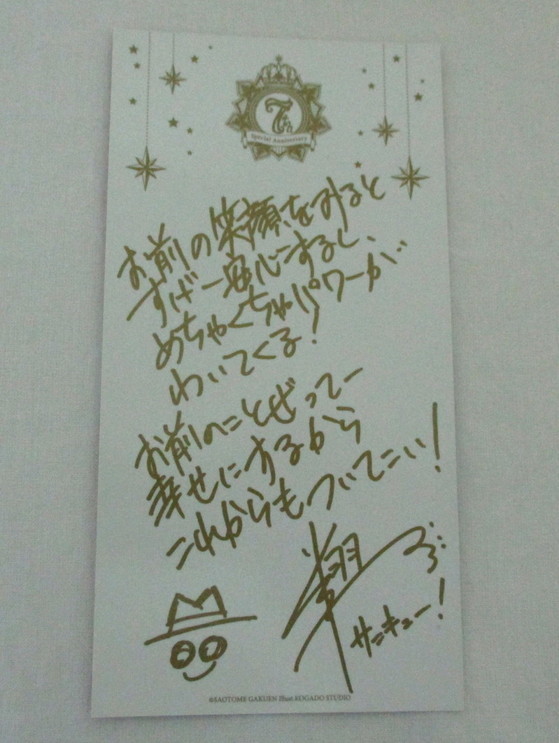 7th
Special Anniversary
お前の笑顔をみると
すげー安心するし、
めちゃくちゃパワーが
わいてくる!
お前のことぜってー
幸せにするから
これからもついてこい!
翔
サンキュー!
©SAOTOME GAKUEN Illust.KOGADO STUDIO